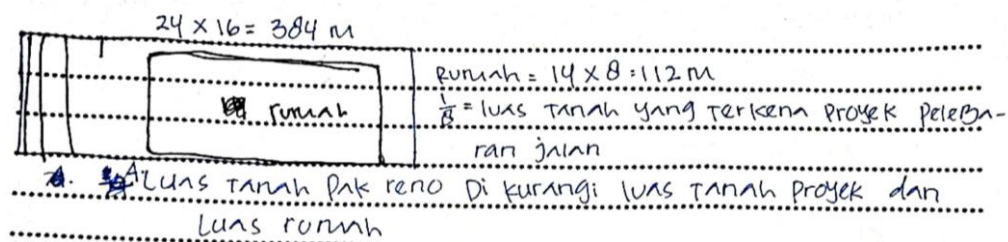 24 × 16 = 384 m
Rumah = 14 × 8 = 112 m
rumah
1/8 = luas Tanah yang Terkena Proyek Pelebaran jalan
A. Luas Tanah Pak reno Di kurangi luas Tanah Proyek dan
Luas rumah